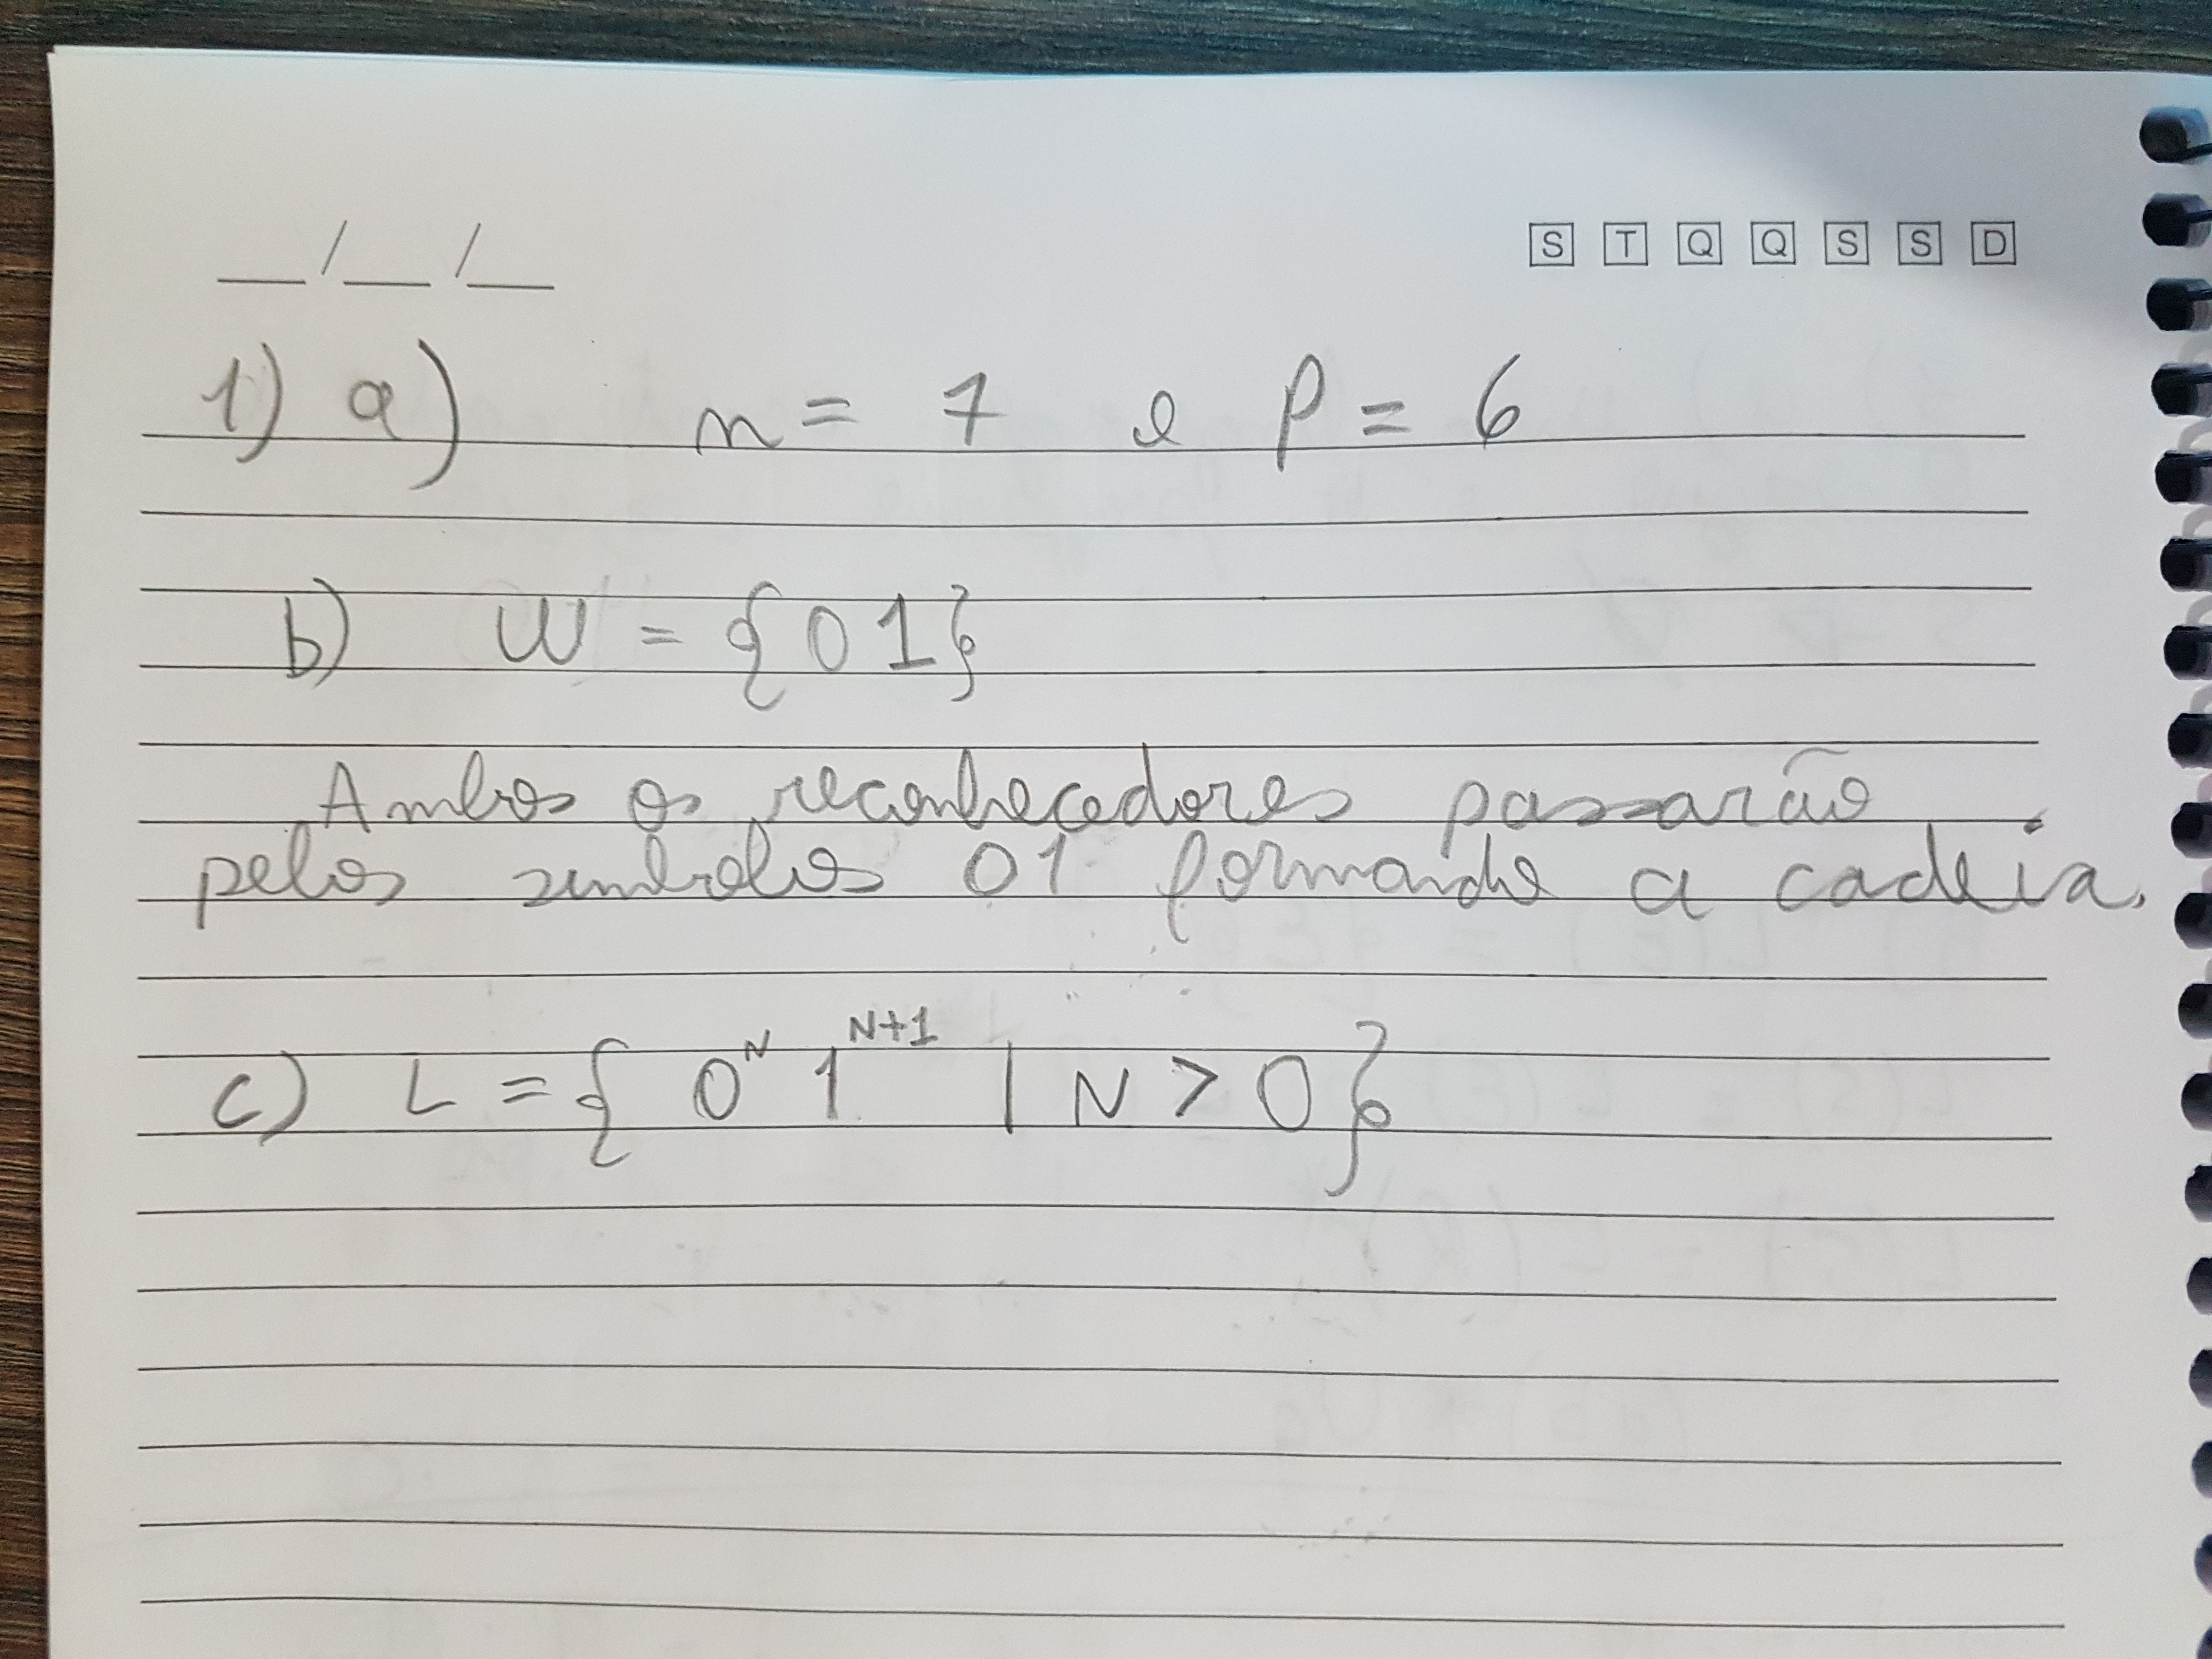 __/__/__
S T Q Q S S D
1) a) n = 7 e P = 6
b) W = {01}
Ambos os reconhecedores passarão
pelos simbolos 01 formando a cadeia.
c) L = { 0^N 1^{N+1} | N > 0}